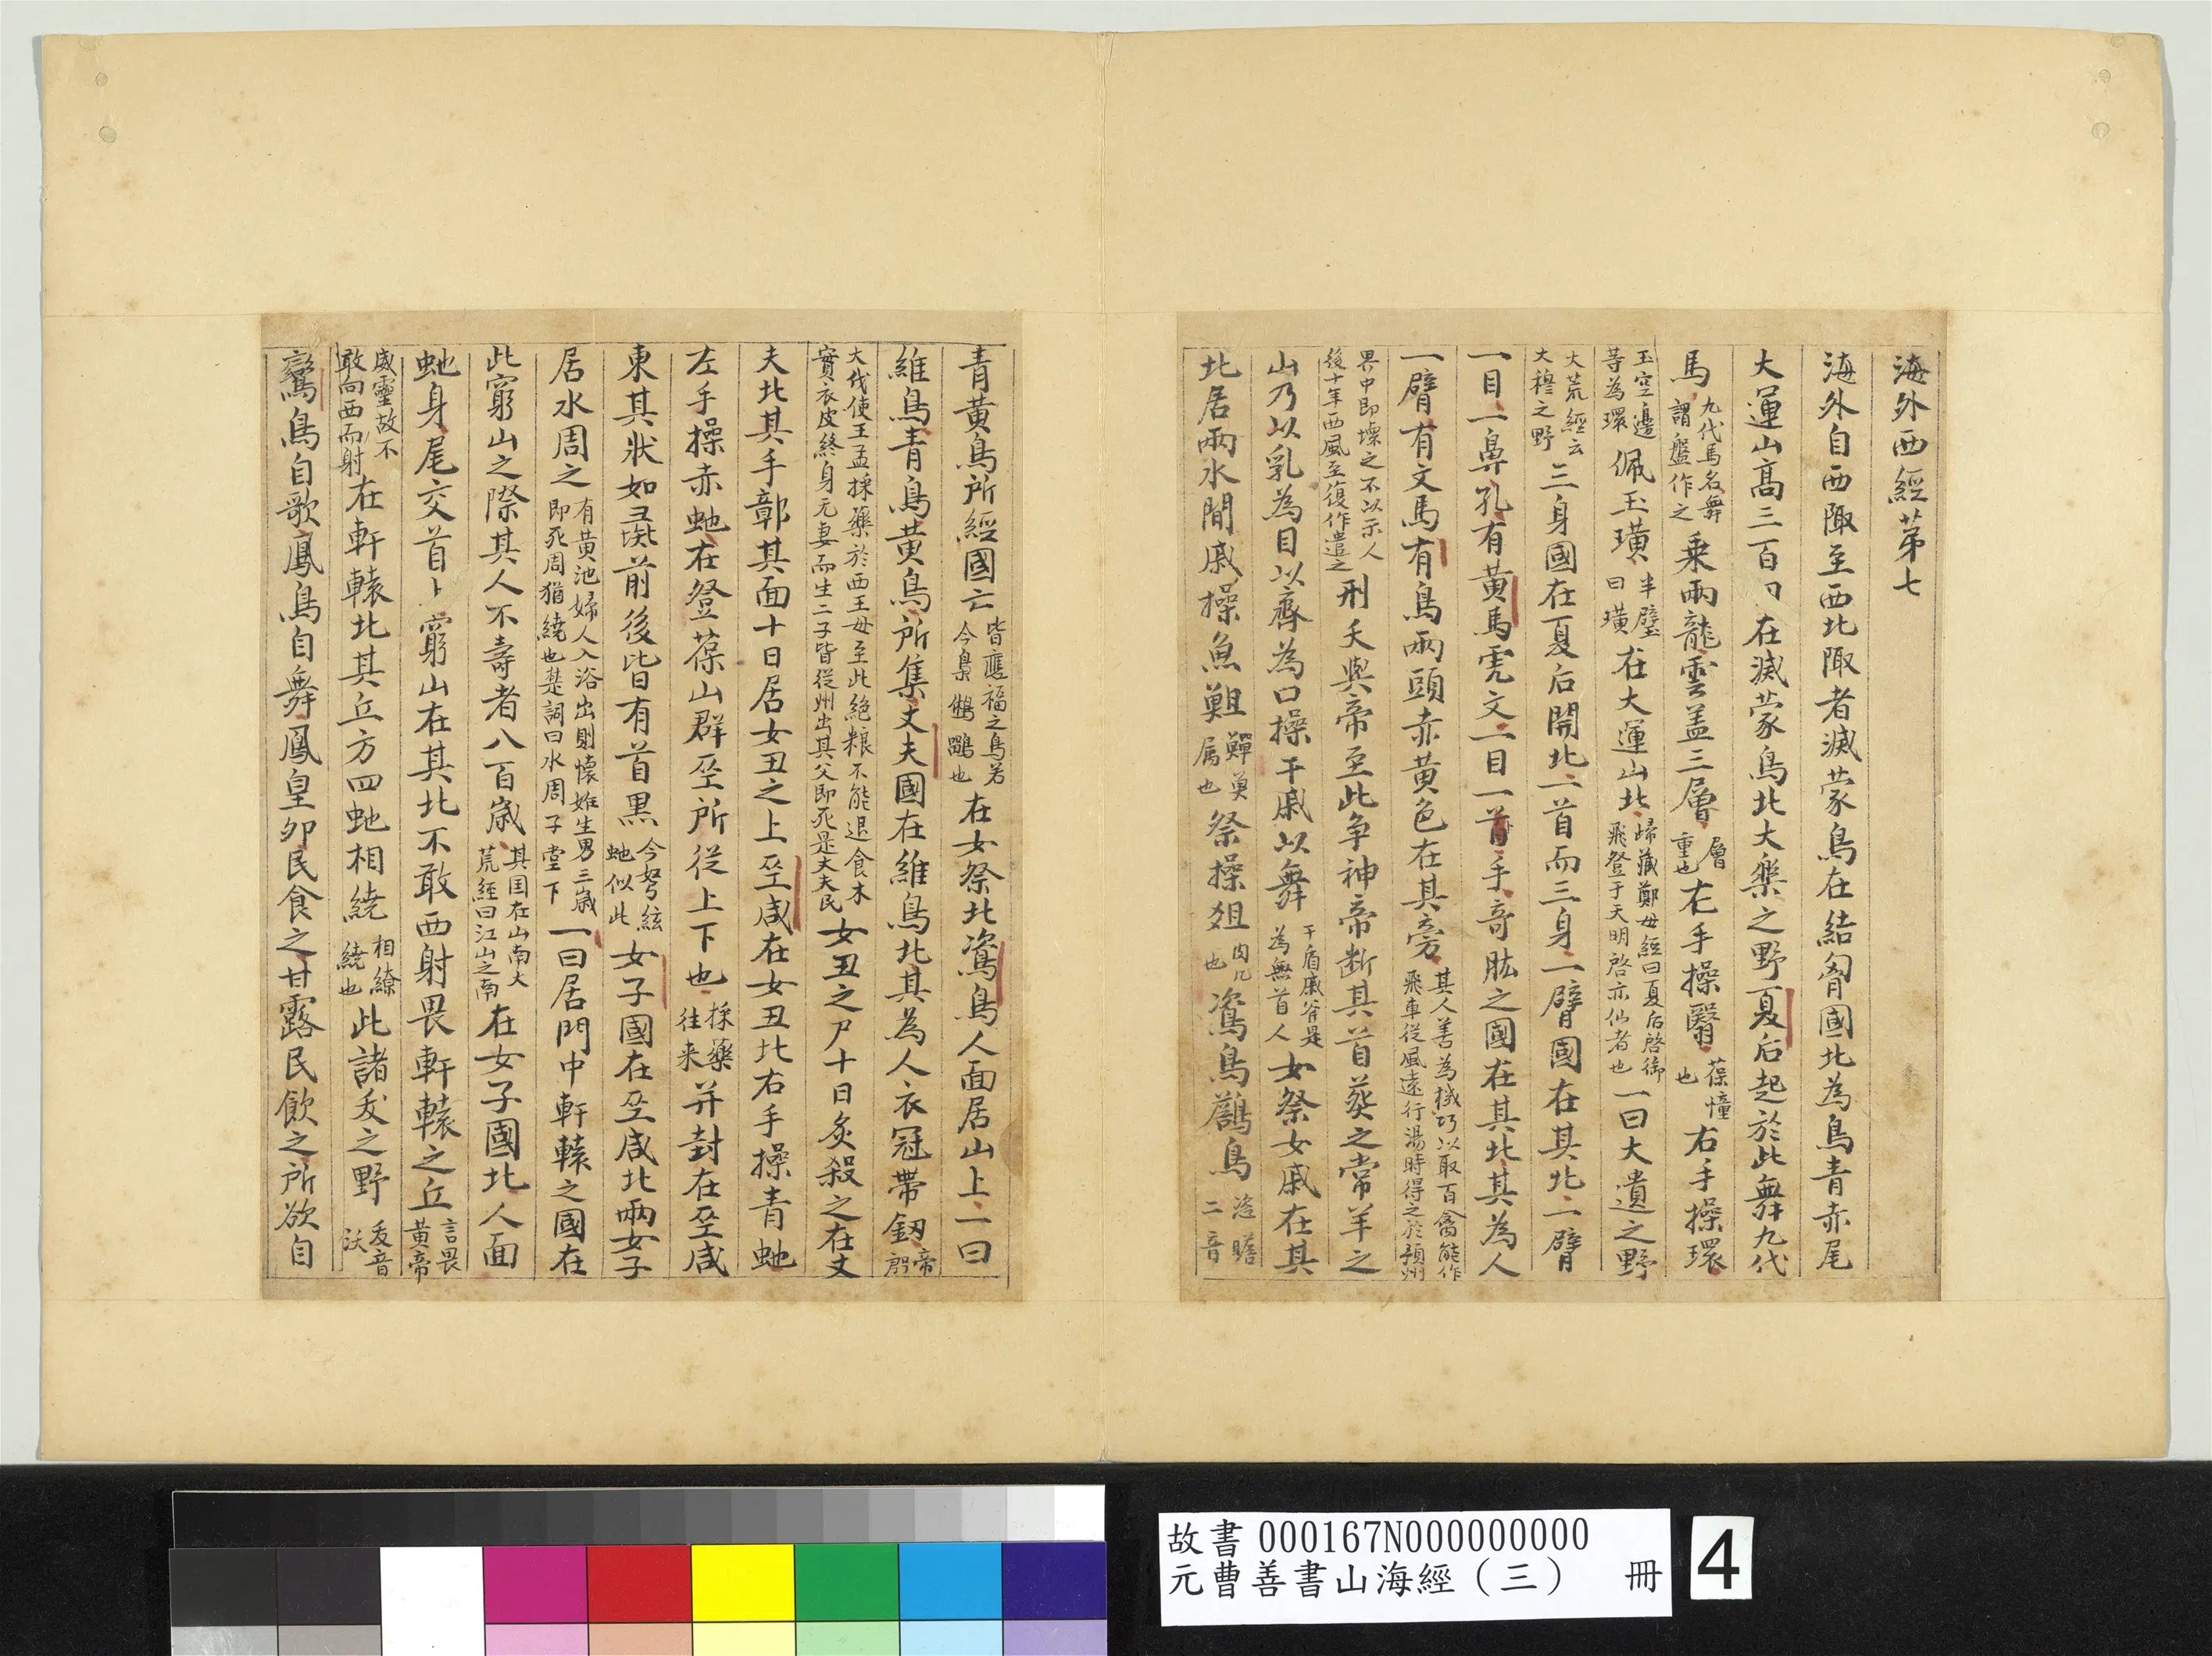 海外西經苐七
海外自西陬至西北陬者滅蒙鳥在結匈國北為鳥青赤尾
大運山髙三百日在滅蒙鳥北大樂之野夏后起於此舞九代
馬九代馬名舞謂盤作之乗兩龍雲盖三層層重也左手操翳葆幢也右手操環
玉空邊䓁為環佩玉璜半璧曰璜在大運山北歸藏鄭母經曰夏后啓御飛登于天明啓亦仙者也一曰大遺之野
大荒經云大穆之野三身國在夏后開北一首而三身一臂國在其北一臂
一目一鼻孔有黄馬虎文一目一首手竒肱之國在其北其為人
一臂有文馬有鳥兩頭赤黄色在其旁其人善為機巧以取百禽能作飛車從風遠行湯時得之於預州
界中即壊之不以示人後十年西風至復作遣之刑夭與帝至此争神帝断其首葵之常羊之
山乃以乳為目以齊為口操干戚以舞干盾戚斧是為無首人女祭女戚在其
北居兩水間戚操魚䱉鱓魚属也祭操俎肉几也鳥鶬鳥二音
青黄鳥所經國亡皆應福之鳥若今梟鵂鶹也在女祭北鳥人面居山上一曰
維鳥青鳥黄鳥所集丈夫國在維鳥北其為人衣冠帶劒
大戊使王孟採藥於西王母至此絶粮不能退食木實衣皮終身元妻而生二子皆從州出其父即死是丈夫民女丑之尸十日炙殺之在丈
夫北其手鄣其面十日居女丑之上巫咸在女丑北右手操青虵
左手操赤虵在登葆山群巫所從上下也採藥徃来并封在巫咸
東其狀如彘前後皆有首黒今弩絃虵似此女子國在巫咸北兩女子
居水周之有黄池婦人入浴出則懐姙生男三歳即死周猶繞也楚詞曰水周子堂下一曰居門中軒轅之國在
此窮山之際其人不壽者八百歳其国在山南大荒經曰江山之南在女子國北人面
虵身尾交首上窮山在其北不敢西射畏軒轅之丘言畏黄帝
威靈故不敢向西而射在軒轅北其丘方四虵相繞相繚繞也此諸夭之野夭音沃
鸞鳥自歌鳳鳥自舞鳳皇卵民食之甘露民飲之所欲自
故書 000167N000000000
元曹善書山海經（三） 冊
4